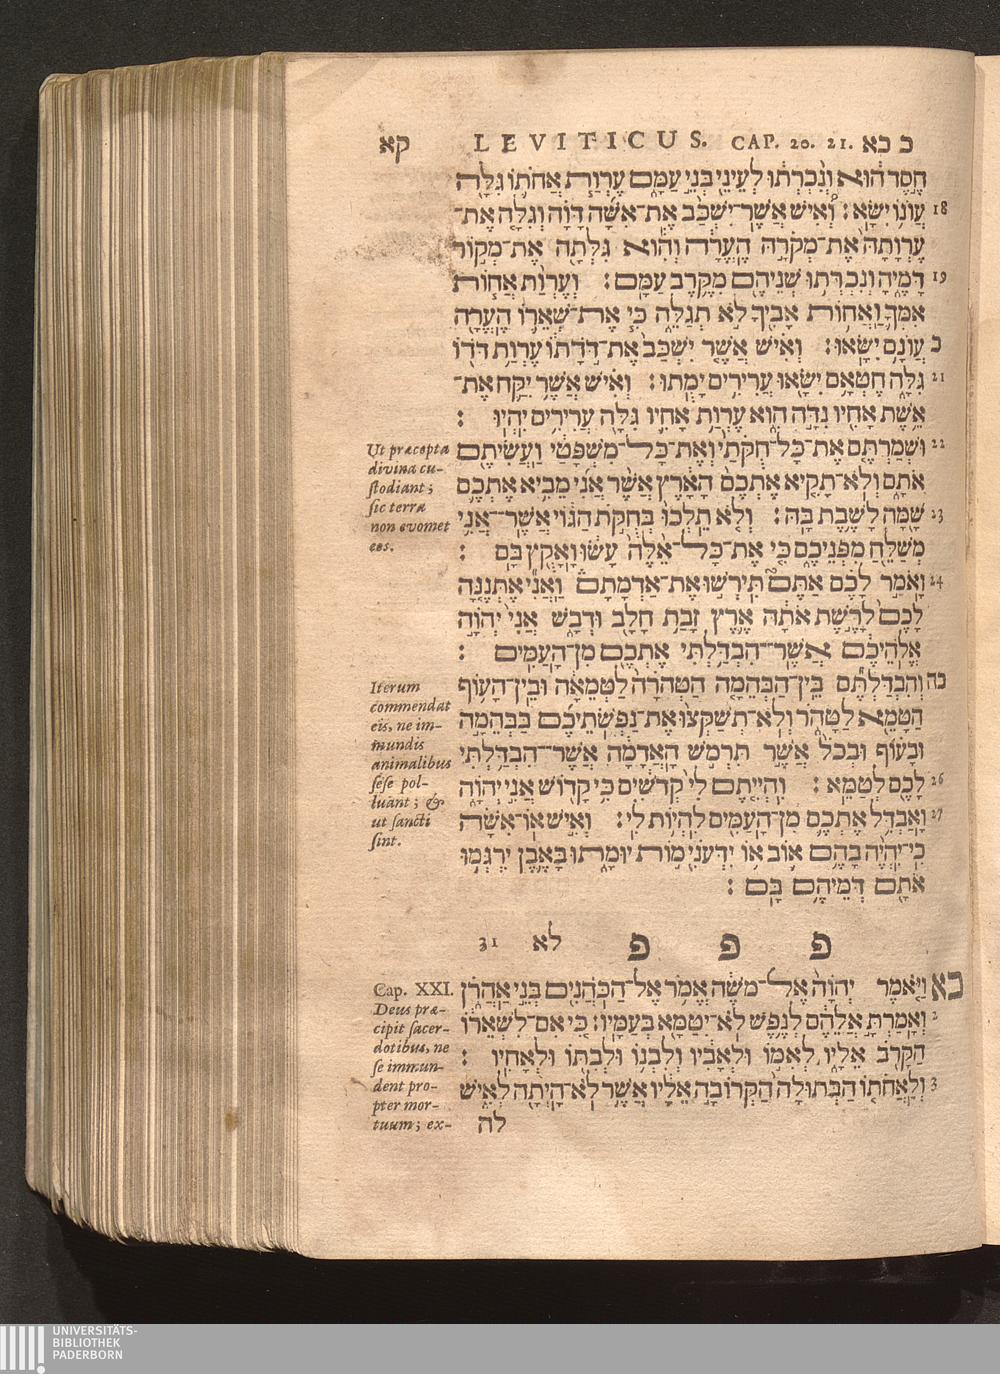 קא LEVITICUS. CAP. 20. 21. כ כא
חֶסֶד הוּא וְנִכְרְתוּ לְעֵינֵי בְּנֵי עַמָּם עֶרְוַת אֲחֹתוֹ גִּלָּה
18 עֲוֹנוֹ יִשָּׂא׃ וְאִישׁ אֲשֶׁר־יִשְׁכַּב אֶת־אִשָּׁה דָּוָה וְגִלָּה אֶת־
עֶרְוָתָהּ אֶת־מְקֹרָהּ הֶעֱרָה וְהִוא גִּלְּתָה אֶת־מְקוֹר
19 דָּמֶיהָ וְנִכְרְתוּ שְׁנֵיהֶם מִקֶּרֶב עַמָּם׃ וְעֶרְוַת אֲחוֹת
אִמְּךָ וַאֲחוֹת אָבִיךָ לֹא תְגַלֵּה כִּי אֶת־שְׁאֵרוֹ הֶעֱרָה
כ עֲוֹנָם יִשָּׂאוּ׃ וְאִישׁ אֲשֶׁר יִשְׁכַּב אֶת־דֹּדָתוֹ עֶרְוַת דֹּדוֹ
21 גִּלָּה חֶטְאָם יִשָּׂאוּ עֲרִירִים יָמֻתוּ׃ וְאִישׁ אֲשֶׁר יִקַּח אֶת־
אֵשֶׁת אָחִיו נִדָּה הִוא עֶרְוַת אָחִיו גִּלָּה עֲרִירִים יִהְיוּ׃
22 וּשְׁמַרְתֶּם אֶת־כָּל־חֻקֹּתַי וְאֶת־כָּל־מִשְׁפָּטַי וַעֲשִׂיתֶם
אֹתָם וְלֹא־תָקִיא אֶתְכֶם הָאָרֶץ אֲשֶׁר אֲנִי מֵבִיא אֶתְכֶם
23 שָׁמָּה לָשֶׁבֶת בָּהּ׃ וְלֹא תֵלְכוּ בְּחֻקֹּת הַגּוֹי אֲשֶׁר־אֲנִי
מְשַׁלֵּחַ מִפְּנֵיכֶם כִּי אֶת־כָּל־אֵלֶּה עָשׂוּ וָאָקֻץ בָּם׃
24 וָאֹמַר לָכֶם אַתֶּם תִּירְשׁוּ אֶת־אַדְמָתָם וַאֲנִי אֶתְּנֶנָּה
לָכֶם לָרֶשֶׁת אֹתָהּ אֶרֶץ זָבַת חָלָב וּדְבָשׁ אֲנִי יְהוָֹה
אֱלֹהֵיכֶם אֲשֶׁר־הִבְדַּלְתִּי אֶתְכֶם מִן־הָעַמִּים׃
כה וְהִבְדַּלְתֶּם בֵּין־הַבְּהֵמָה הַטְּהֹרָה לַטְּמֵאָה וּבֵין־הָעוֹף
הַטָּמֵא לַטָּהֹר וְלֹא־תְשַׁקְּצוּ אֶת־נַפְשֹׁתֵיכֶם בַּבְּהֵמָה
וּבָעוֹף וּבְכֹל אֲשֶׁר תִּרְמֹשׂ הָאֲדָמָה אֲשֶׁר־הִבְדַּלְתִּי
26 לָכֶם לְטַמֵּא׃ וִהְיִיתֶם לִי קְדֹשִׁים כִּי קָדוֹשׁ אֲנִי יְהוָֹה
27 וָאַבְדִּל אֶתְכֶם מִן־הָעַמִּים לִהְיוֹת לִי׃ וְאִישׁ אוֹ־אִשָּׁה
כִּי־יִהְיֶה בָהֶם אוֹב אוֹ יִדְּעֹנִי מוֹת יוּמָתוּ בָּאֶבֶן יִרְגְּמוּ
אֹתָם דְּמֵיהֶם בָּם׃
פ פ פ לא 31
כא וַיֹּאמֶר יְהוָֹה אֶל־מֹשֶׁה אֱמֹר אֶל־הַכֹּהֲנִים בְּנֵי אַהֲרֹן
2 וְאָמַרְתָּ אֲלֵהֶם לְנֶפֶשׁ לֹא־יִטַּמָּא בְּעַמָּיו׃ כִּי אִם־לִשְׁאֵרוֹ
הַקָּרֹב אֵלָיו לְאִמּוֹ וּלְאָבִיו וְלִבְנוֹ וּלְבִתּוֹ וּלְאָחִיו׃
3 וְלַאֲחֹתוֹ הַבְּתוּלָה הַקְּרוֹבָה אֵלָיו אֲשֶׁר לֹא־הָיְתָה לְאִישׁ
לה
Ut præcepta
divina cu-
ſtodiant;
ſic terra
non evomet
eos.
Iterum
commendat
eis, ne im-
mundis
animalibus
ſeſe pol-
luant; &
ut ſancti
ſint.
Cap. XXI.
Deus præ-
cipit ſacer-
dotibus, ne
ſe immun-
dent pro-
pter mor-
tuum; ex-
UNIVERSITÄTS-
BIBLIOTHEK
PADERBORN